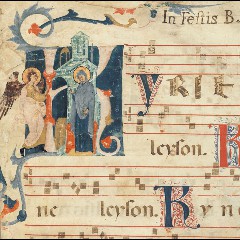 In Festis B.
Kyrie
leyson. K
ne leyson. Kyri